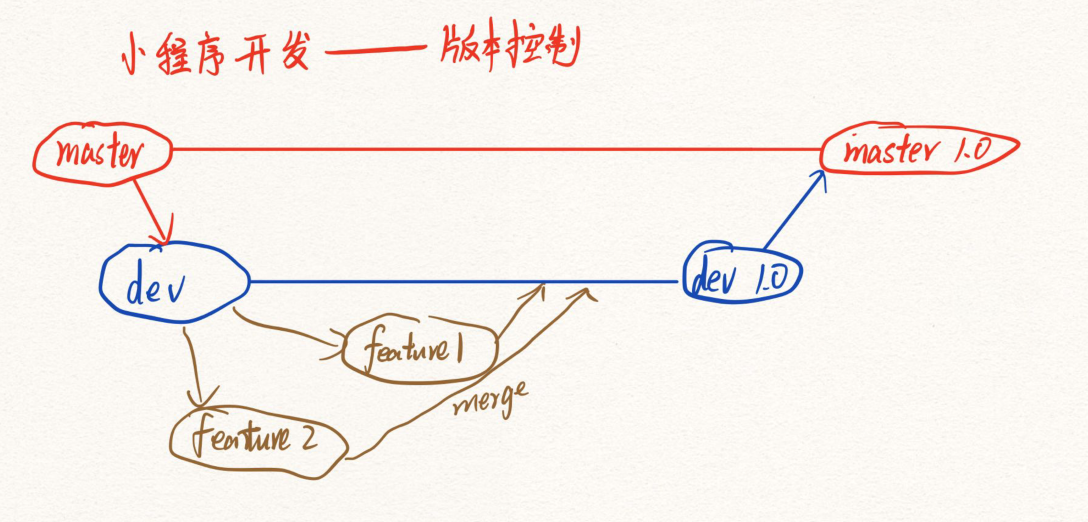 小程序开发——版本控制
master
master 1.0
dev
dev 1.0
feature1
merge
feature2